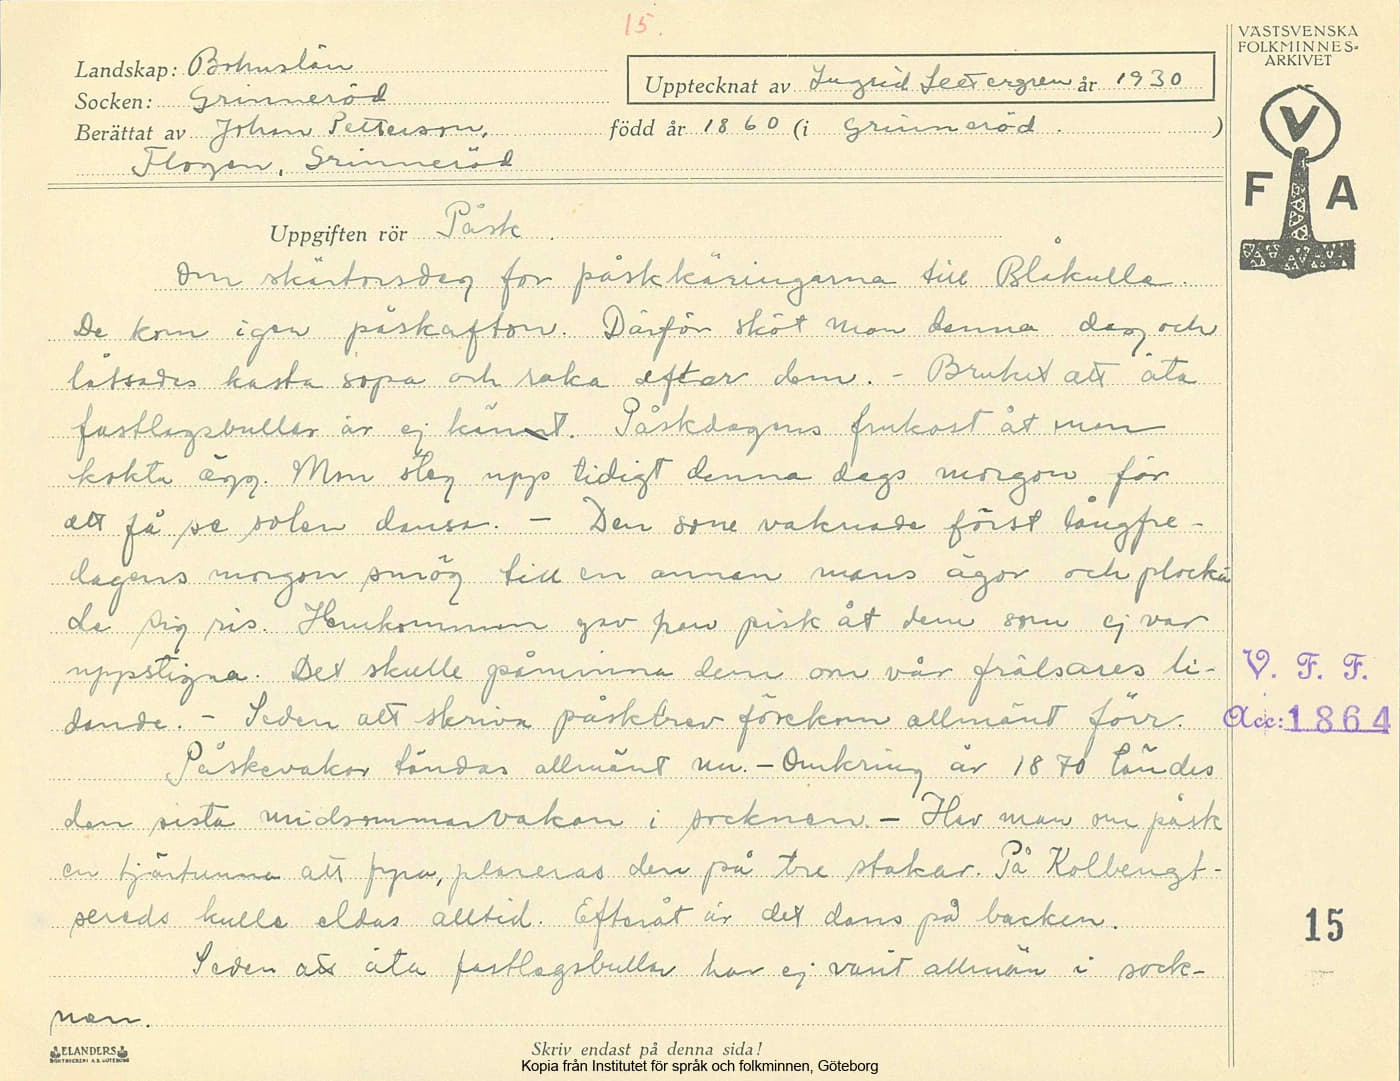 15.
Landskap: Bohuslän
Socken: Grinneröd
Upptecknat av Ingrid Settergren år 1930
Berättat av Johan Petterson, född år 1860 (i Grinneröd. )
Flogen, Grinneröd
VÄSTSVENSKA
FOLKMINNES-
ARKIVET
V
F A
Uppgiften rör Påsk.
Om skärtorsdag for påskkäringarna till Blåkulla.
De kom igen påskafton. Därför sköt man denna dag och
låtsades kasta sopa och raka efter dem. - Bruket att äta
fastlagsbullar är ej känt. Påskdagens frukost åt man
kokta ägg. Man steg upp tidigt denna dags morgon för
att få se solen dansa. - Den som vaknade först långfre-
dagens morgon smög till en annan mans ägor och plocka
de sig ris. Hemkommen gav han pisk åt dem som ej var
uppstigna. Det skulle påminna dem om vår frälsares li-
dande. - Seden att skriva påskbrev förekom allmänt förr.
Påskevakar tändas allmänt nu. - Omkring år 1870 tändes
den sista midsommarvakan i socknen. - Har man om påsk
en tjärtunna att fyra, placeras den på tre stakar. På Kolbengt-
sereds kulle eldas alltid. Efteråt är det dans på backen.
Seden att äta fastlagsbullar har ej varit allmän i sock-
nen.
V. F. F.
Acc: 1864
15
ELANDERS
BOKTRYCKERI A.B. GÖTEBORG
Skriv endast på denna sida!
Kopia från Institutet för språk och folkminnen, Göteborg